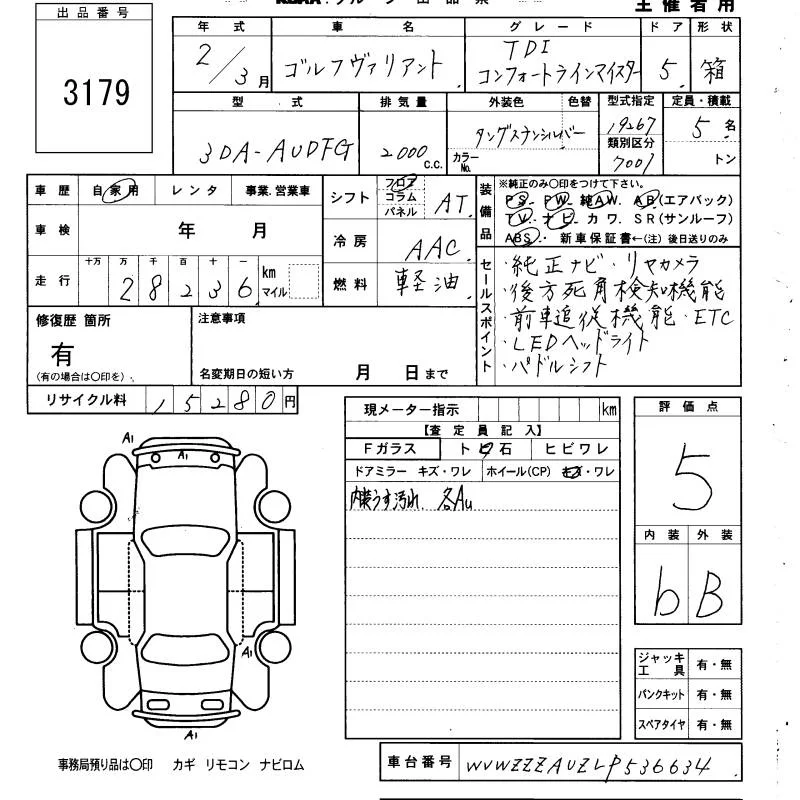 出品番号
3179
主催者用
年式 車名 グレード ドア 形状
2/3月 ゴルフヴァリアント TDI コンフォートラインマイスター 5 箱
型式 排気量 外装色 色替 型式指定 定員・積載
3DA-AUDFG 2000 c.c. タングステンシルバー カラーNo. 19267 5名
類別区分
7001 トン
車歴 自家用 レンタ 事業.営業車
車検 年 月
走行 十万 万 千 百 十 一 km マイル
28236
シフト フロア コラム パネル AT
冷房 AAC
燃料 軽油
装備品 ※純正のみ○印をつけて下さい。
PS. PW. 純AW. AB(エアバック)
TV. ナビ. カワ. SR(サンルーフ)
ABS. 新車保証書←(注)後日送りのみ
セールスポイント
・純正ナビ・リヤカメラ
・後方死角検知機能
・前車追従機能・ETC
・LEDヘッドライト
・パドルシフト
修復歴 箇所
有
(有の場合は○印を)
注意事項
名変期日の短い方 月 日まで
リサイクル料 15280円
現メーター指示 km
【査定員記入】
Fガラス ト 石 ヒビワレ
ドアミラー キズ・ワレ ホイール(CP) キズ・ワレ
内装うす汚れ 各Au
評価点
5
内装 外装
b B
A1
A1
A1
A1
ジャッキ工具 有・無
パンクキット 有・無
スペアタイヤ 有・無
事務局預り品は○印 カギ リモコン ナビロム
車台番号 WVWZZZAUZLP536634